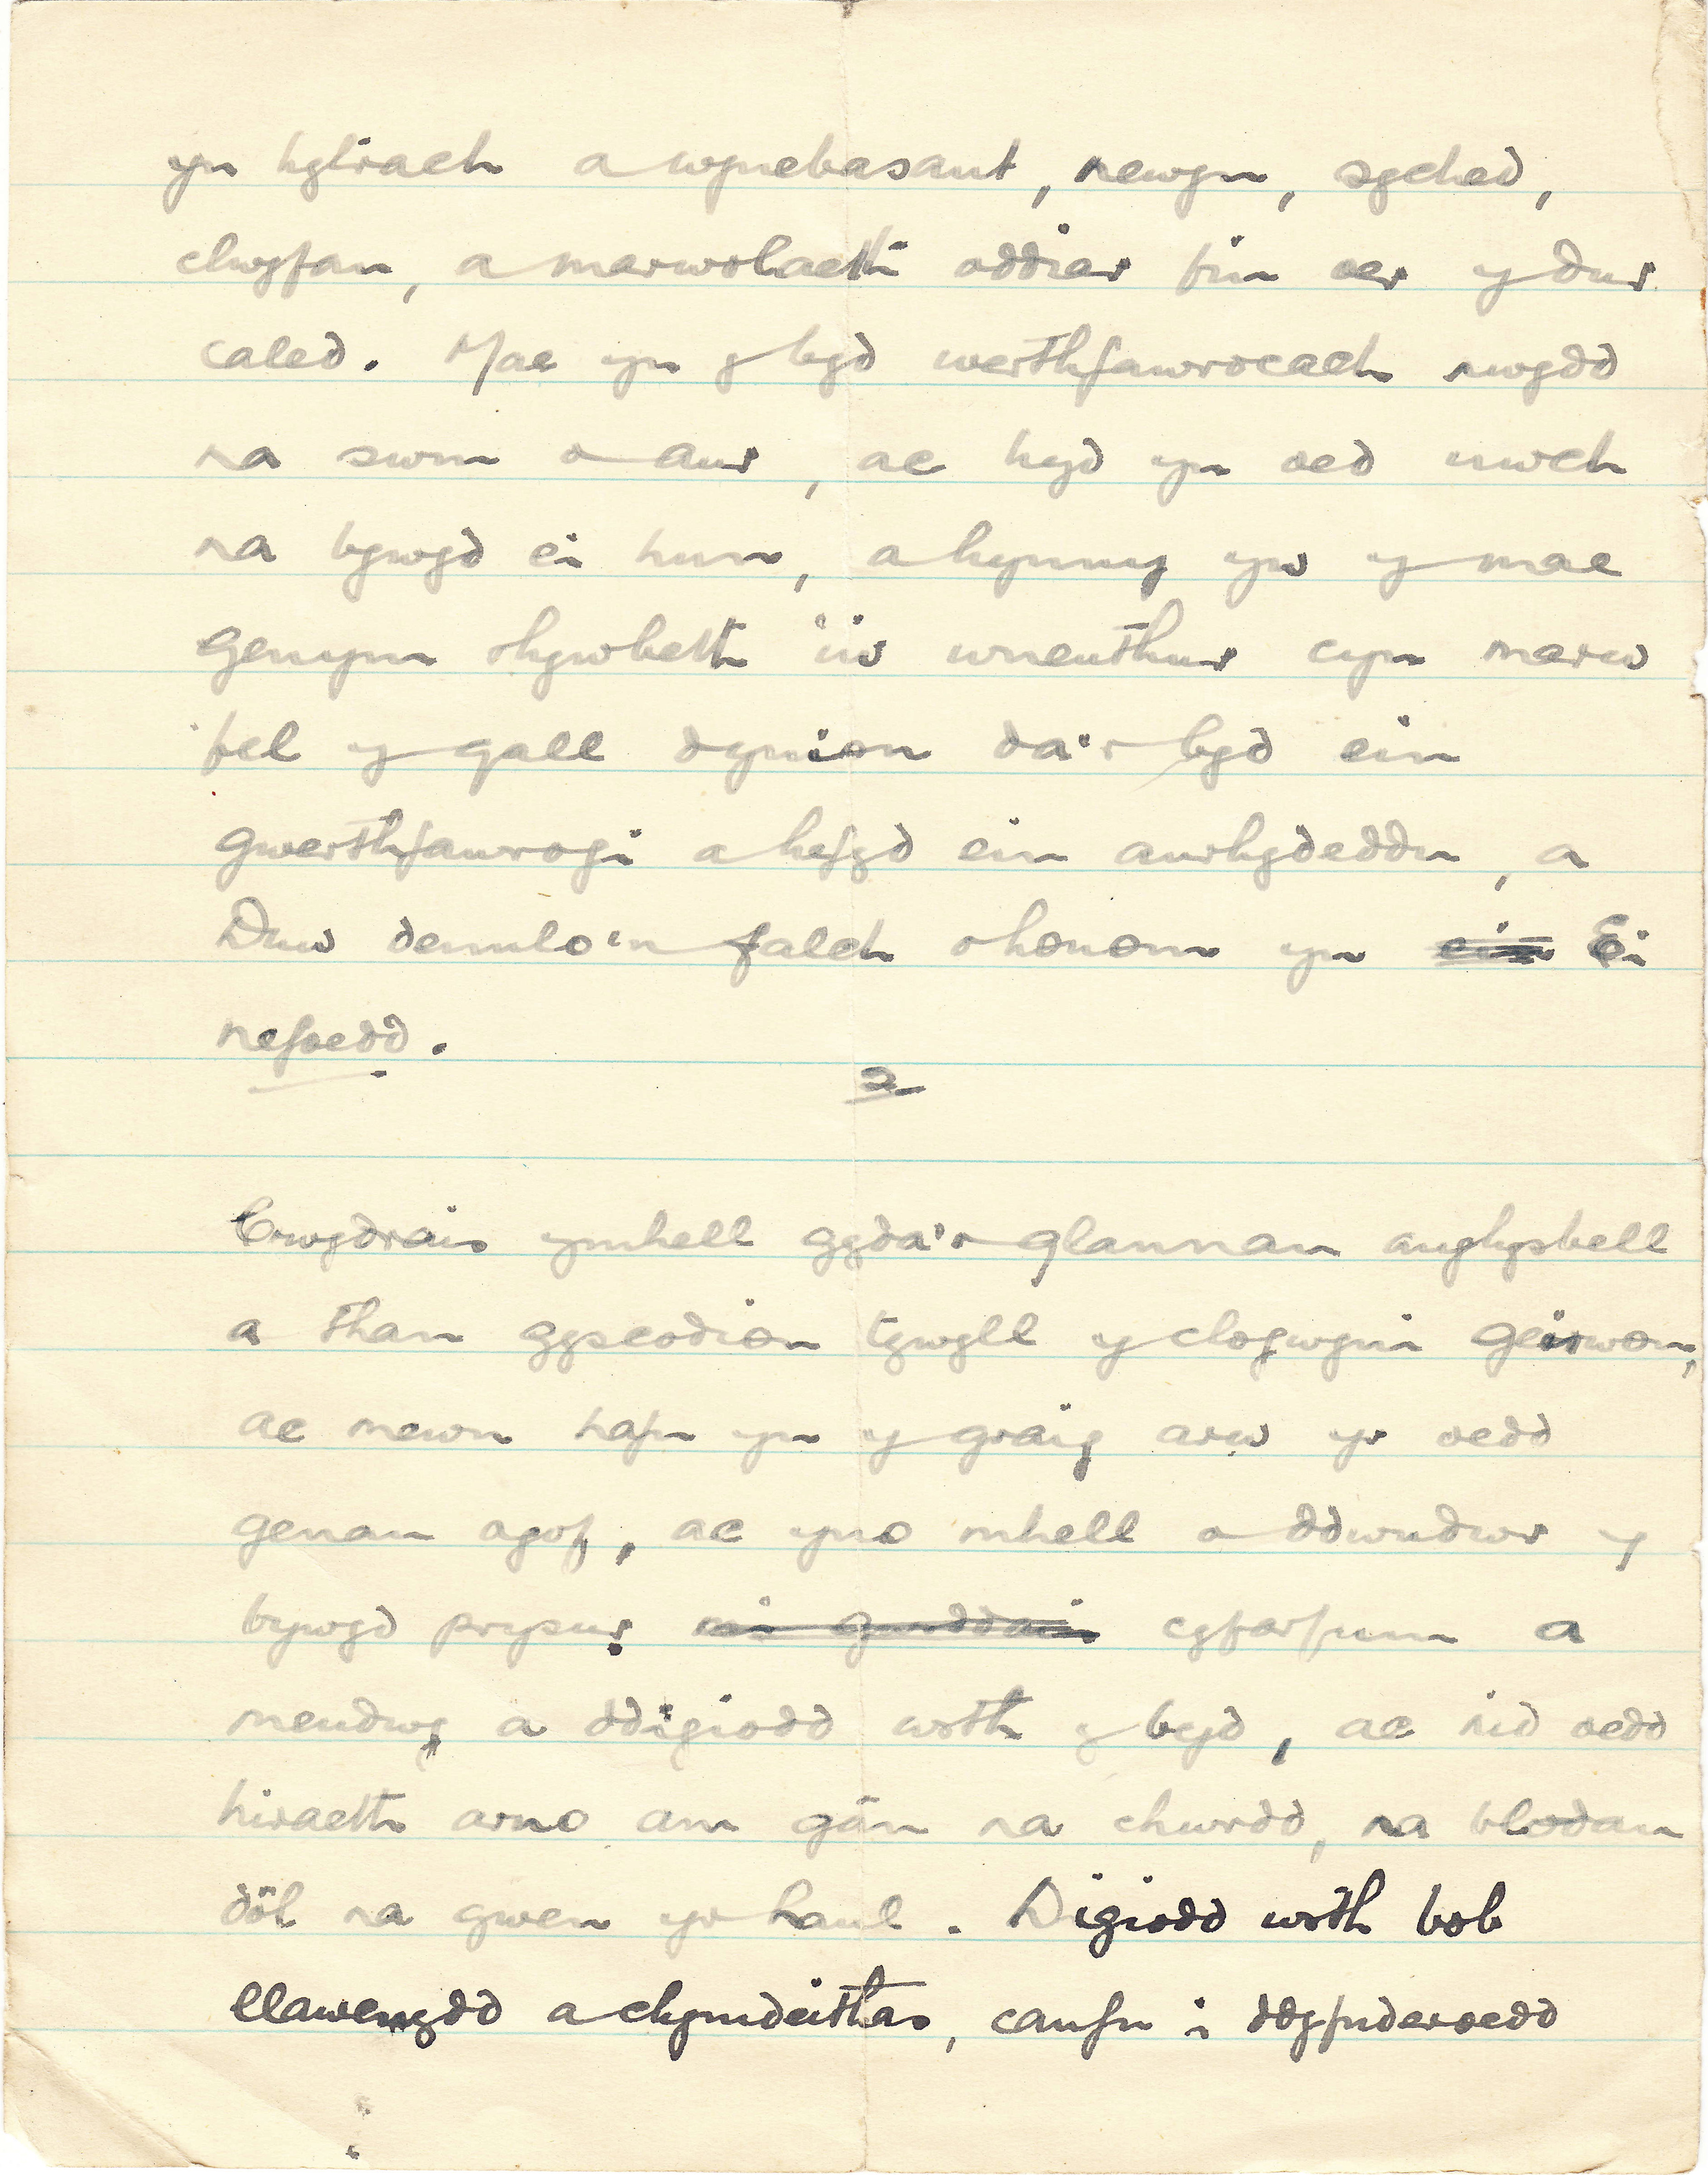 yn hytrach a wynebasant, newyn, syched,
clwyfau, a marwolaeth oddiar fin oer y dur
caled. Mae yn y byd werthfawrocach nwydd
na swm o aur, ac hyd yn oed uwch
na bywyd ei hun, a hynny yw y mae
genym rhywbeth i'w wneuthur cyn marw
fel y gall dynion da'r byd ein
gwerthfawrogi a hefyd ein anrhydeddu, a
Duw deimlo'n falch ohonom yn ein Ei
nefoedd.
2
Crwydrais ymhell gyda'r glannau anghysbell
a than gysgodion tywyll y clogwyni geirwon,
ac mewn hafn yn y graig arw yr oedd
genau ogof, ac yno mhell o ddwndwr y
bywyd prysur mi gwrddais cyfarfum a
meudwy a ddigiodd wrth y byd, ac nid oedd
hiraeth arno am gân na chwrdd, na blodau
dôl na gwen yr haul. Digiodd wrth bob
llawenydd a chymdeithas, canfu i ddyfnderoedd